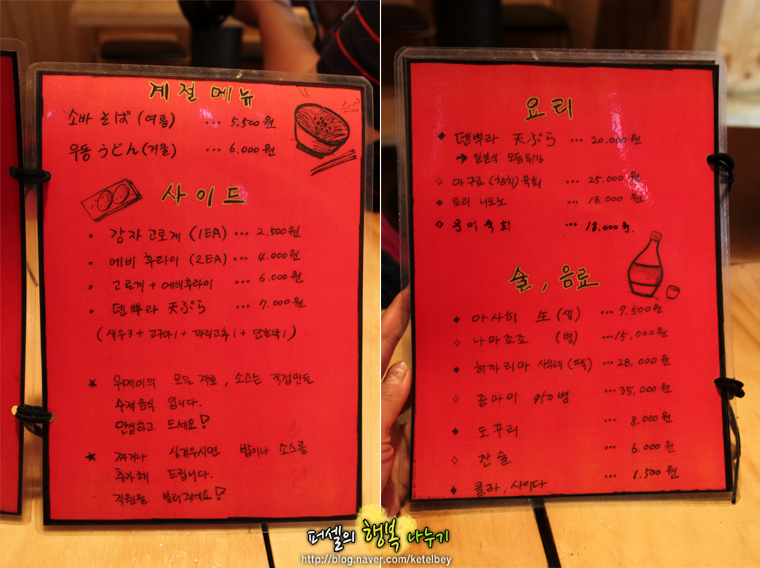 계절 메뉴
소바 そば (여름) ... 5,500원
우동 うどん (겨울) ... 6,000원
사이드
• 감자 고로케 (1EA) ... 2,500원
• 에비 후라이 (2EA) ... 4,000원
• 고로케 + 에비후라이 ... 6,000원
• 덴뿌라 天ぷら ... 7,000원
(새우3 + 고구마1 + 꽈리고추1 + 단호박1)
★ 우메이의 모든 재료, 소스는 직접만든
수제 음식 입니다.
안심하고 드세요!
★ 짜거나 싱거우시면 밥이나 소스를
추가해 드립니다.
직원을 불러주세요!
요리
◆ 덴뿌라 天ぷら ... 20,000원
→ 일본식 모듬튀김
◇ 마구로 (참치) 육회 ... 25,000원
◆ 요리 니모노 ... 18,000원
◇ 육회 ... 18,000원.
술, 음료
◆ 아사히 生 (생) ... 7,500원
◇ 나마죠죠 (병) ...15,000원
◆ 히까리마 사무네 (팩) ...28,000원
◇ 준마이 950병 ...35,000원
◆ 도꾸리 ... 8,000원
◇ 잔술 ... 6,000원
◆ 콜라, 사이다 ... 1,500원
퍼셀의 행복 나누기
http://blog.naver.com/ketelbey